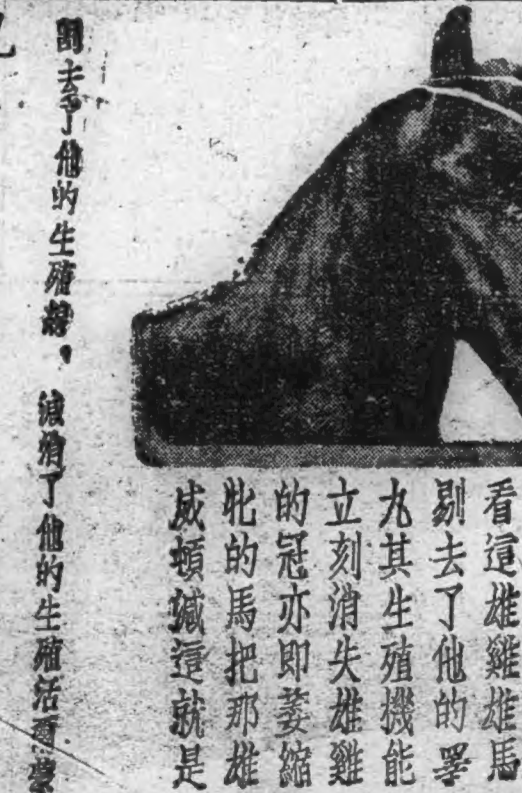 看這雄雞雄馬
剔去了他的睪
丸其生殖機能
立刻消失雄雞
的冠亦即萎縮
牝的馬把那雄
威頓緘這就是
去了他的生殖
了他的生殖活